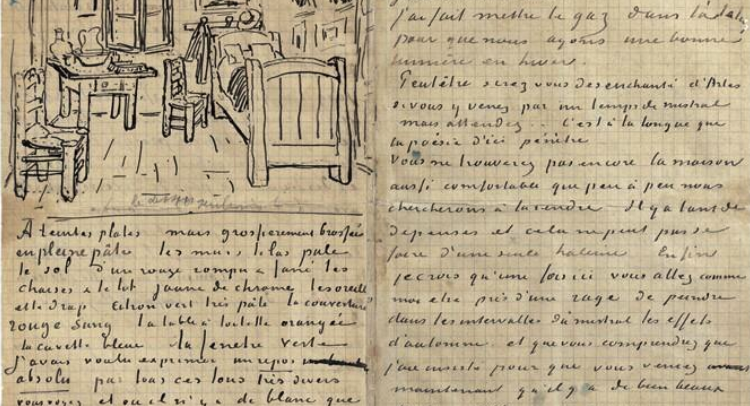 A teintes plates mais grossierement brossées
en pleine pâte les murs lilas pale
le sol d'un rouge rompu & fané les
chaises & le lit jaune de chrome les oreill
et le drap citron vert très pâle la couverture
rouge sang la table à toilette orangée
la cuvette bleue la fenetre verte
j'avais voulu exprimer un repos
absolu par tous ces tons très divers
vous voyez et ou il n'y a de blanc que
j'ai fait mettre le gaz dans
pour que nous ayons une bonne
lumière en hiver.
Peutêtre serez vous desenchanté d'Arles
si vous y venez par un temps de mistral
mais attendez.. C'est à la longue que
la poésie d'ici pénètre
Vous ne trouverez pas encore la maison
aussi comfortable que peu à peu nous
chercherons à la rendre Il y a tant de
depenses et cela ne peut pas se
faire d'une seule haleine Enfin
je crois qu'une fois ici vous allez comme
moi etre pris d'une rage de peindre
dans les intervalles du mistral les effets
d'automne. et que vous comprendrez que
j'ai insisté pour que vous venez
maintenant qu'il y a de bien beaux